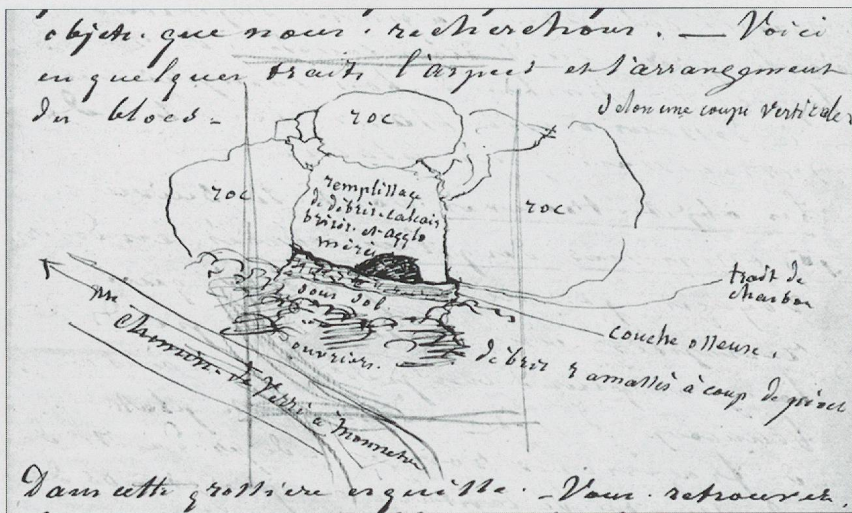 objets que nous recherchons. — Voici
en quelques traits l'aspect et l'arrangement
des blocs -
selon une coupe verticale
roc
roc
remplissage
de débris calcair
brisés et agglo
mérés
roc
trait de
charbon
sous sol
couche osseuse.
ouvriers.
débris ramassés à coup de
chemin de Veiri à Monnetier
Dans cette grossière esquisse. - Vous retrouverez